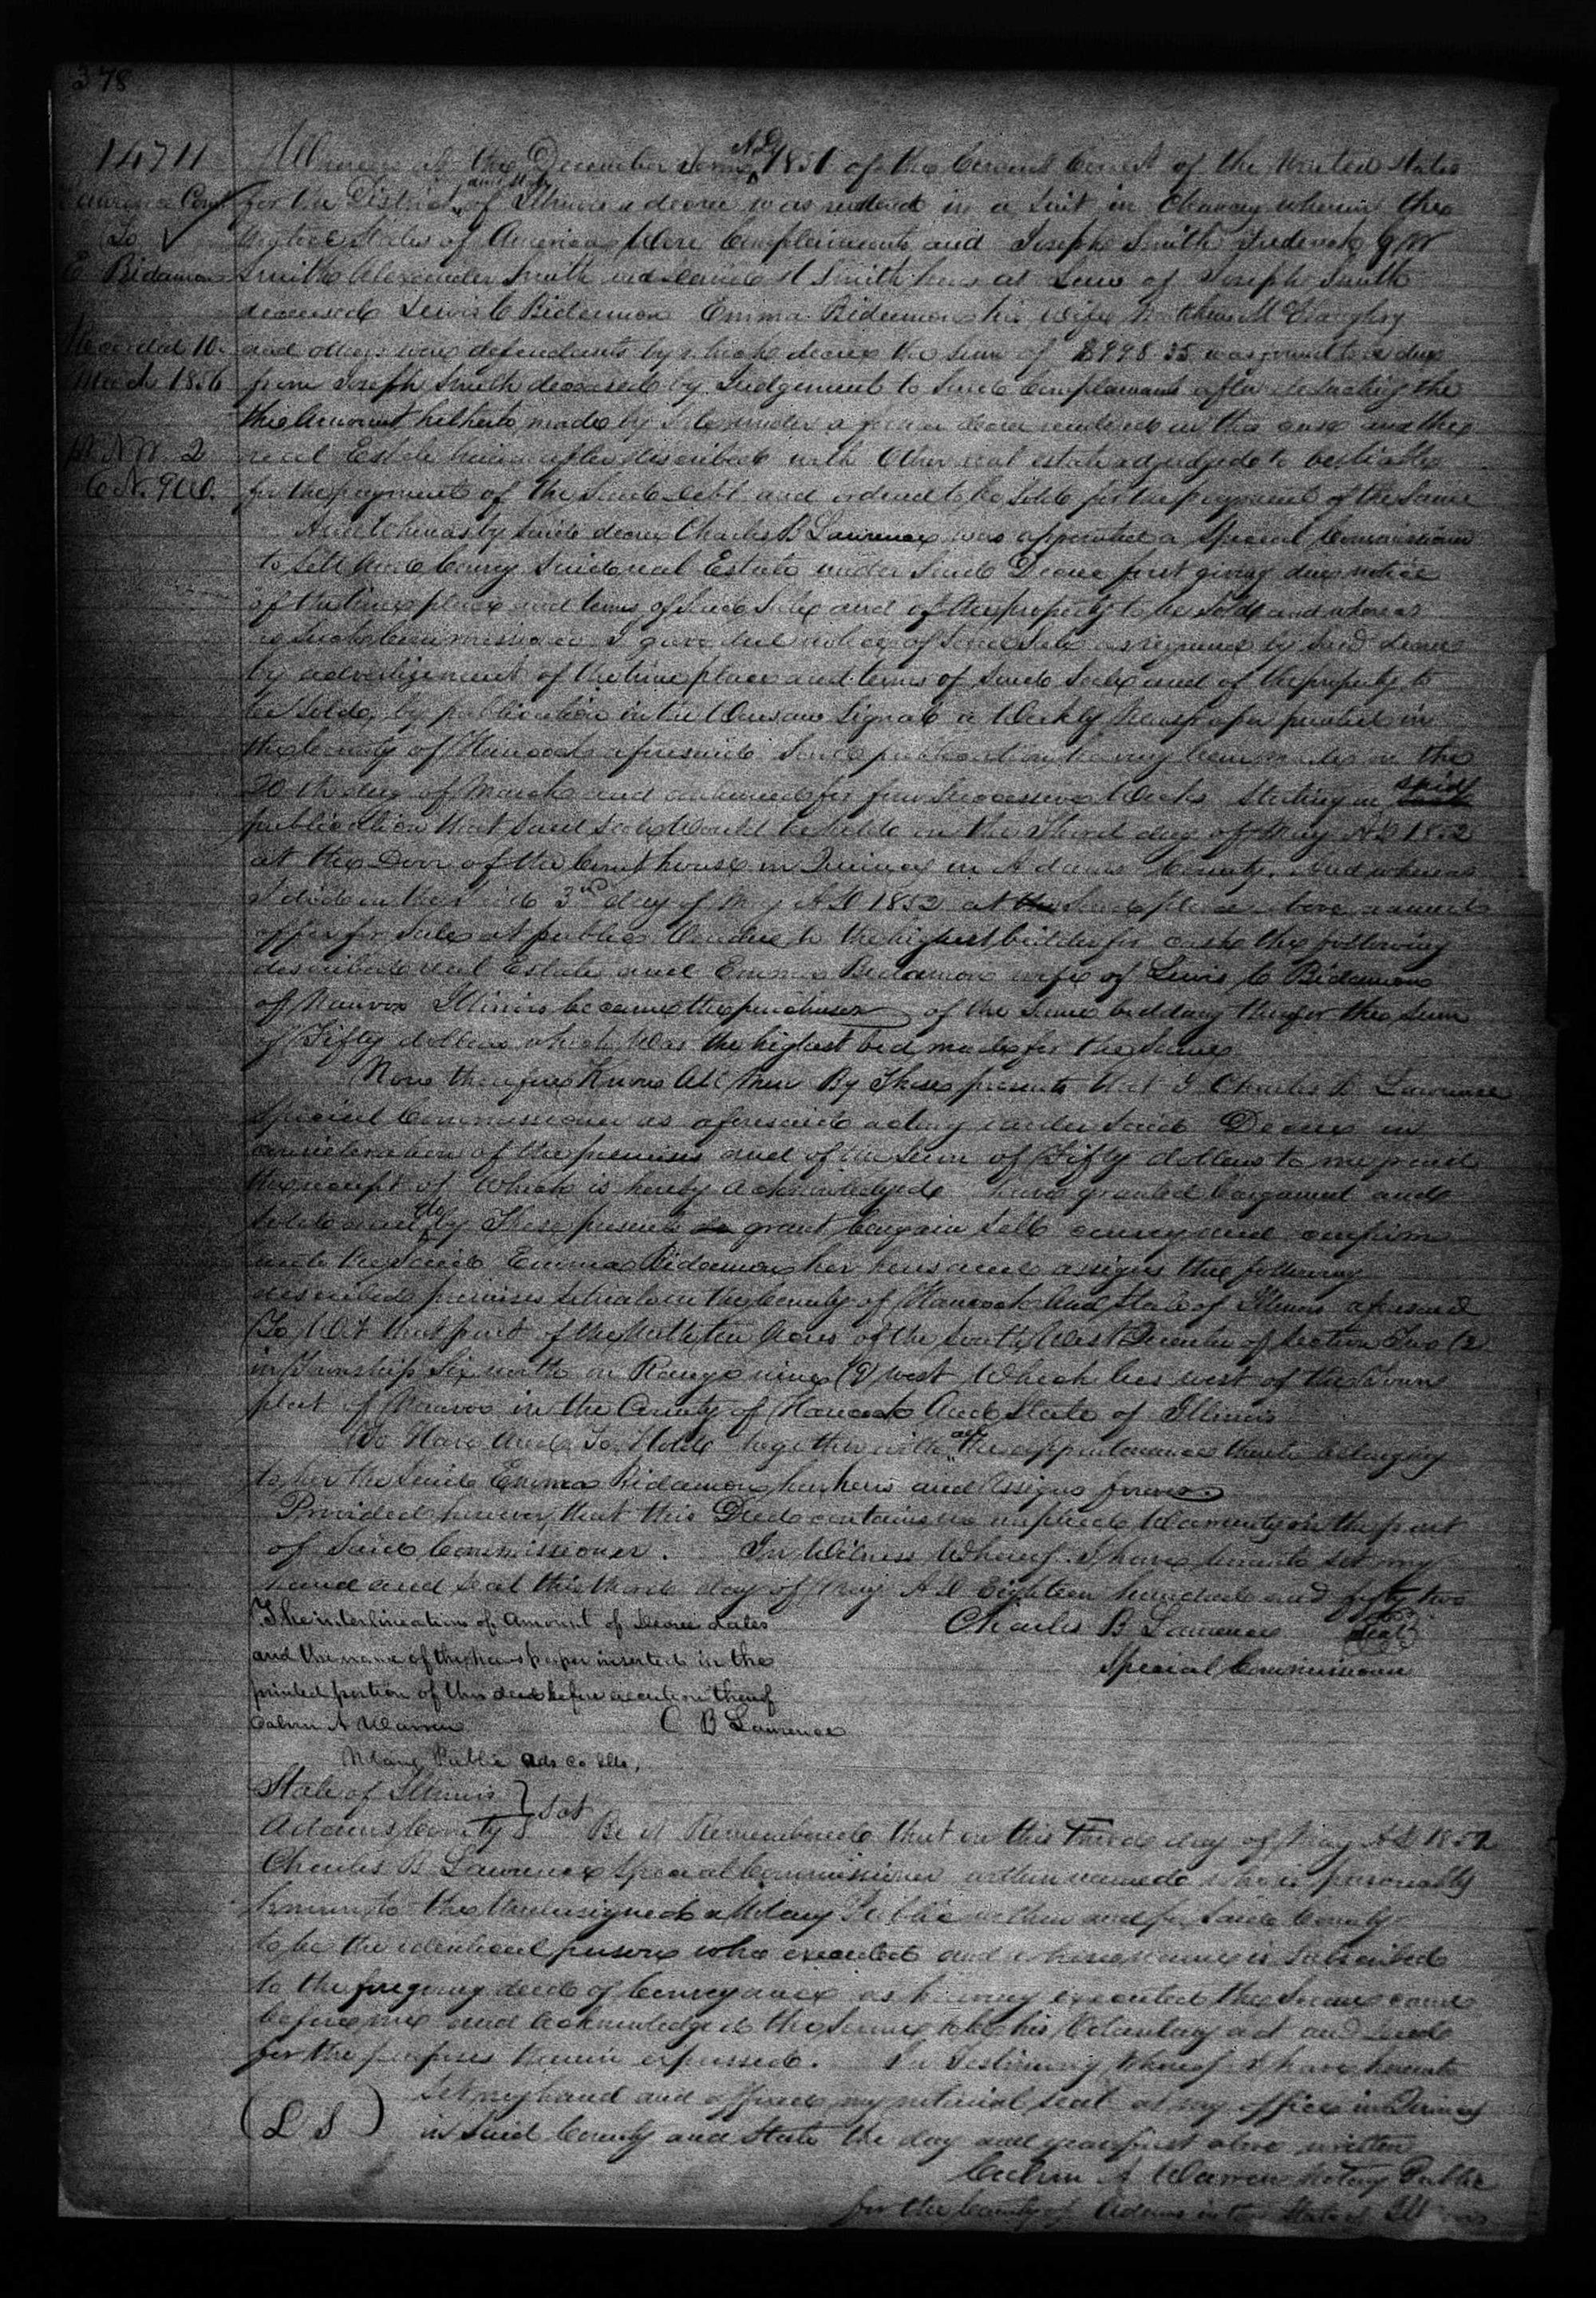 378
14711
Lawrence Comr
To
E Bidamon
Recorded 10
March 1856
pt N W 2
6 N. 9 W.
Whereas at the December Term A D 1851 of the Circuit Court of the United States
for the District and State of Illinois a decree was rendered in a Suit in Chancery wherein the
United States of America Were Complainants and Joseph Smith Frederick G W
Smith Alexander Smith and David H Smith heirs at Law of Joseph Smith
deceased Lewis C Bidamon Emma Bidamon his wife
and others were defendants by which decree the Sum of was found to be due
from Joseph Smith deceased by Judgement to Said Complainants after deducting the
the Amount hitherto made by Sale under a former decree rendered in this cause and the
real Estate hereinafter described with Other real estate adjudged to be liable
for the payment of the Said debt and ordered to be Sold for the payment of the Same
And Whereas by Said decree Charles B Lawrence was appointed a Special Commissioner
to Sell and Convey Said real Estate under Said Decree first giving due notice
of the time place and terms of Said Sale and of the property to be Sold and whereas
as Such Commissioner I gave due notice of Said Sale as required by Said decree
by advertizement of the time place and terms of Said Sale and of the property to
be Sold, by publication in the Warsaw Signal a Weekly Newspaper printed in
the County of Hancock aforesaid Said publication having been made on the
20th day of March and continued for four Successive Weeks Stating in said
publication that Said Sale Would be held on the Third day of May A D 1852
at the Door of the Court house in Quincy in Adams County. And whereas
I did on the Said 3rd day of May A D 1852 at the Said place above named
offer for Sale at public Vendue to the highest bidder for cash the following
described real Estate and Emma Bidamon wife of Lewis C Bidamon
of Nauvoo Illinois became the purchaser of the Same bidding therefor the Sum
of Fifty dollars which Was the highest bid made for the Same
Now therefore Know All Men By These presents that I Charles B Lawrence
Special Commissioner as aforesaid acting under Said Decree in
consideration of the premises and of the Sum of Fifty dollars to me paid
the receipt of Which is hereby acknowledged have granted bargained and
Sold and do by These presents do grant bargain Sell convey and confirm
unto the Said Emma Bidamon her heirs and assigns the following
described premises Situate in the County of Hancock And State of Illinois aforesaid
To Wit that part of the North ten Acres of the South West Quarter of Section Two (2)
in Township Six north on Range nine (9) west Which lies west of the Town
plat of Nauvoo in the County of Hancock And State of Illinois
To Have And To Hold together with all the appurtenances thereto belonging
to her the Said Emma Bidamon her heirs and Assigns forever.
Provided however, that this Deed contains no implied Warranty on the part
of Said Commissioner. In Witness Whereof I have hereunto Set my
hand and Seal this third day of May A D Eighteen hundred and fifty two
The interlineation of Amount of Decree dates
and the name of the Newspaper inserted in the
printed portion of this deed before execution thereof
Charles B Lawrence Seal
Special Commissioner
Calvin A Warren C B Lawrence
Notary Public Ads Co Ills,
State of Illinois
Adams County Sct
Be it Remembered that on this Third day of May A D 1852
Charles B Lawrence Special Commissioner within named who is personally
known to the Undersigned a Notary Public within and for Said County
to be the identical person who executed and whose name is Subscribed
to the foregoing deed of Conveyance as having executed the Same came
before me and acknowledged the Same to be his Voluntary act and deed
for the purposes therein expressed. In Testimony Whereof I have hereunto
Set my hand and affixed my notarial Seal at my office in Quincy
(L S) in Said County and State the day and year first above written
Calvin A Warren Notary Public
for the County of Adams in the State of Illinois